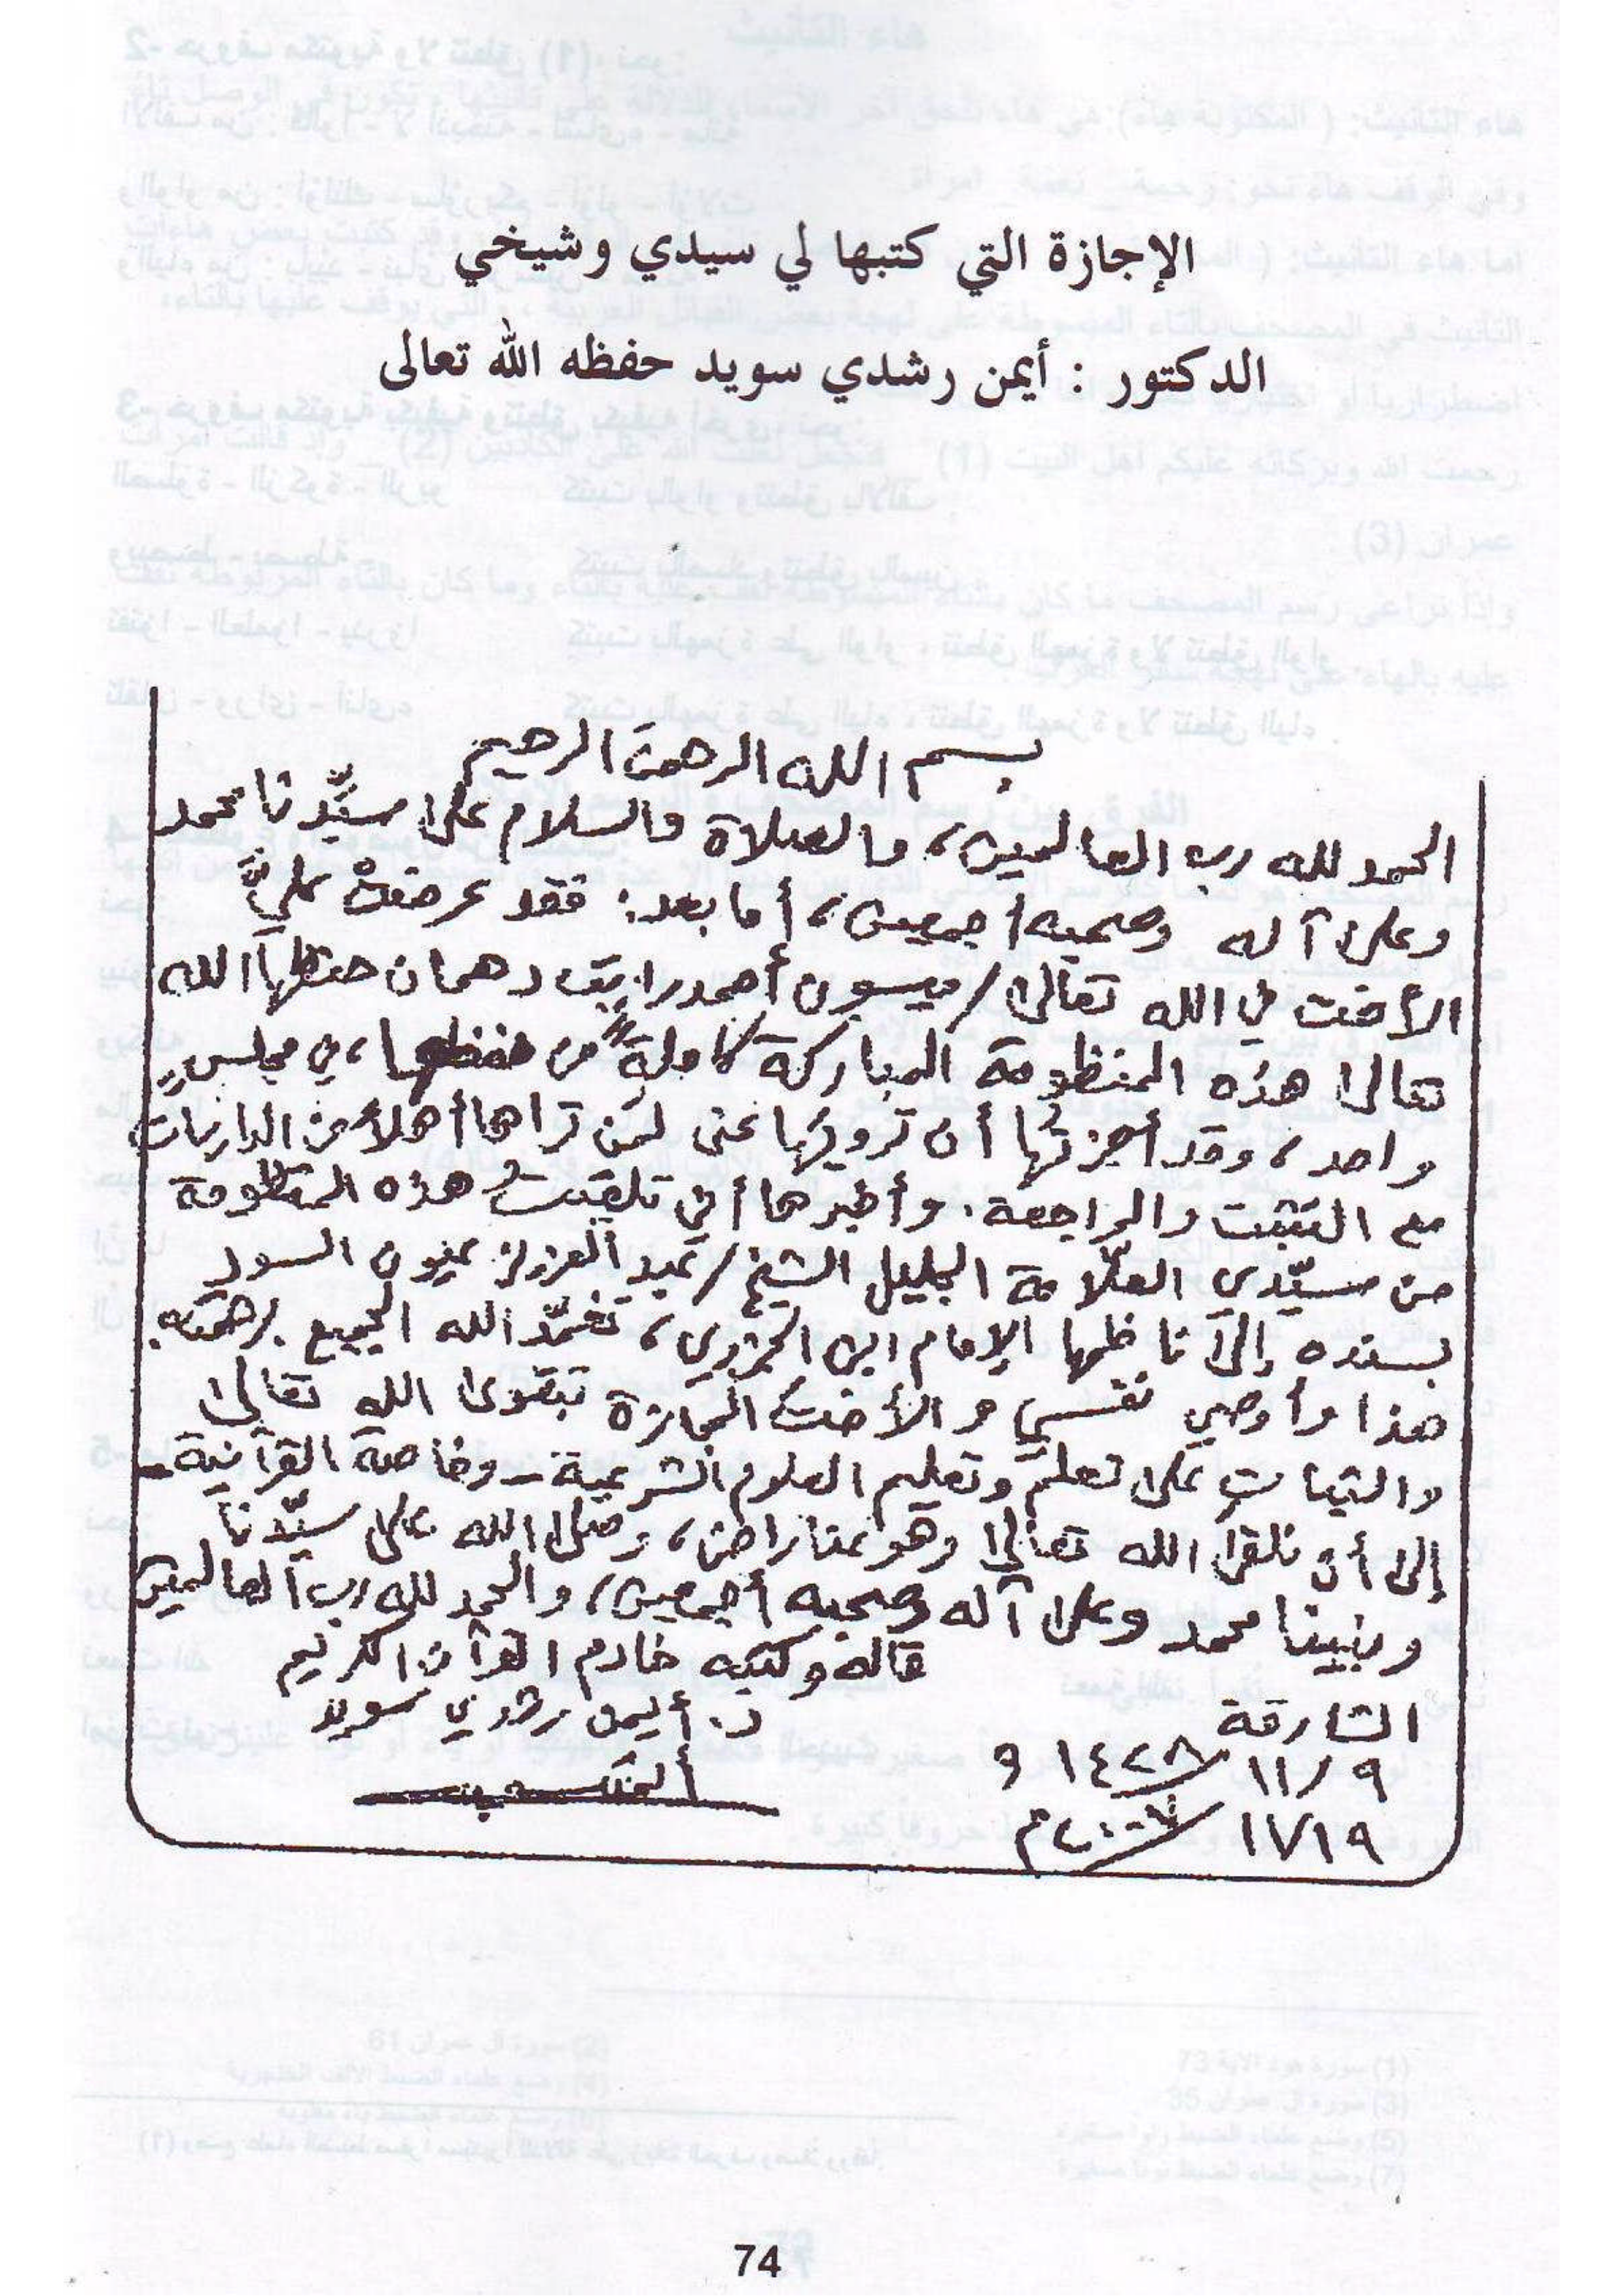 الإجازة التي كتبها لي سيدي وشيخي
الدكتور : أيمن رشدي سويد حفظه الله تعالى
بسم الله الرحمن الرحيم
الحمد لله رب العالمين، والصلاة والسلام على سيّدنا محمد
وعلى آله وصحبه أجمعين، أما بعد: فقد عرضتْ عليَّ
الأخت في الله تعالى / ميسون أحمد راتب دهمان حفظها الله
تعالى هذه المنظومة المباركة كاملةً من حفظها، في مجلسٍ
واحد، وقد أجزتُها أن ترويَها عني لمن تراها أهلاً من الدارسات
مع التثبت والمراجعة. وأخبرها أني تلقيتُ هذه المنظومة
من سيّدي العلّامة الجليل الشيخ / عبد العزيز عيون السود
بسنده إلى ناظمها الإمام ابن الجزري، تغمّد الله الجميع برحمته.
هذا وأوصي نفسي والأختَ المجازة بتقوى الله تعالى
والثبات على تعلم وتعليم العلوم الشرعية - وخاصة القرآنية -
إلى أن نلقى الله تعالى وهو عنا راض، وصلى الله على سيّدنا
ونبينا محمد وعلى آله وصحبه أجمعين، والحمد لله رب العالمين
قاله وكتبه خادم القرآن الكريم
د. أيمن رشدي سويد
الشارقة
٩ / ١١ / ١٤٢٨ و
١٩ / ١١ / ٢٠٠٧م
74